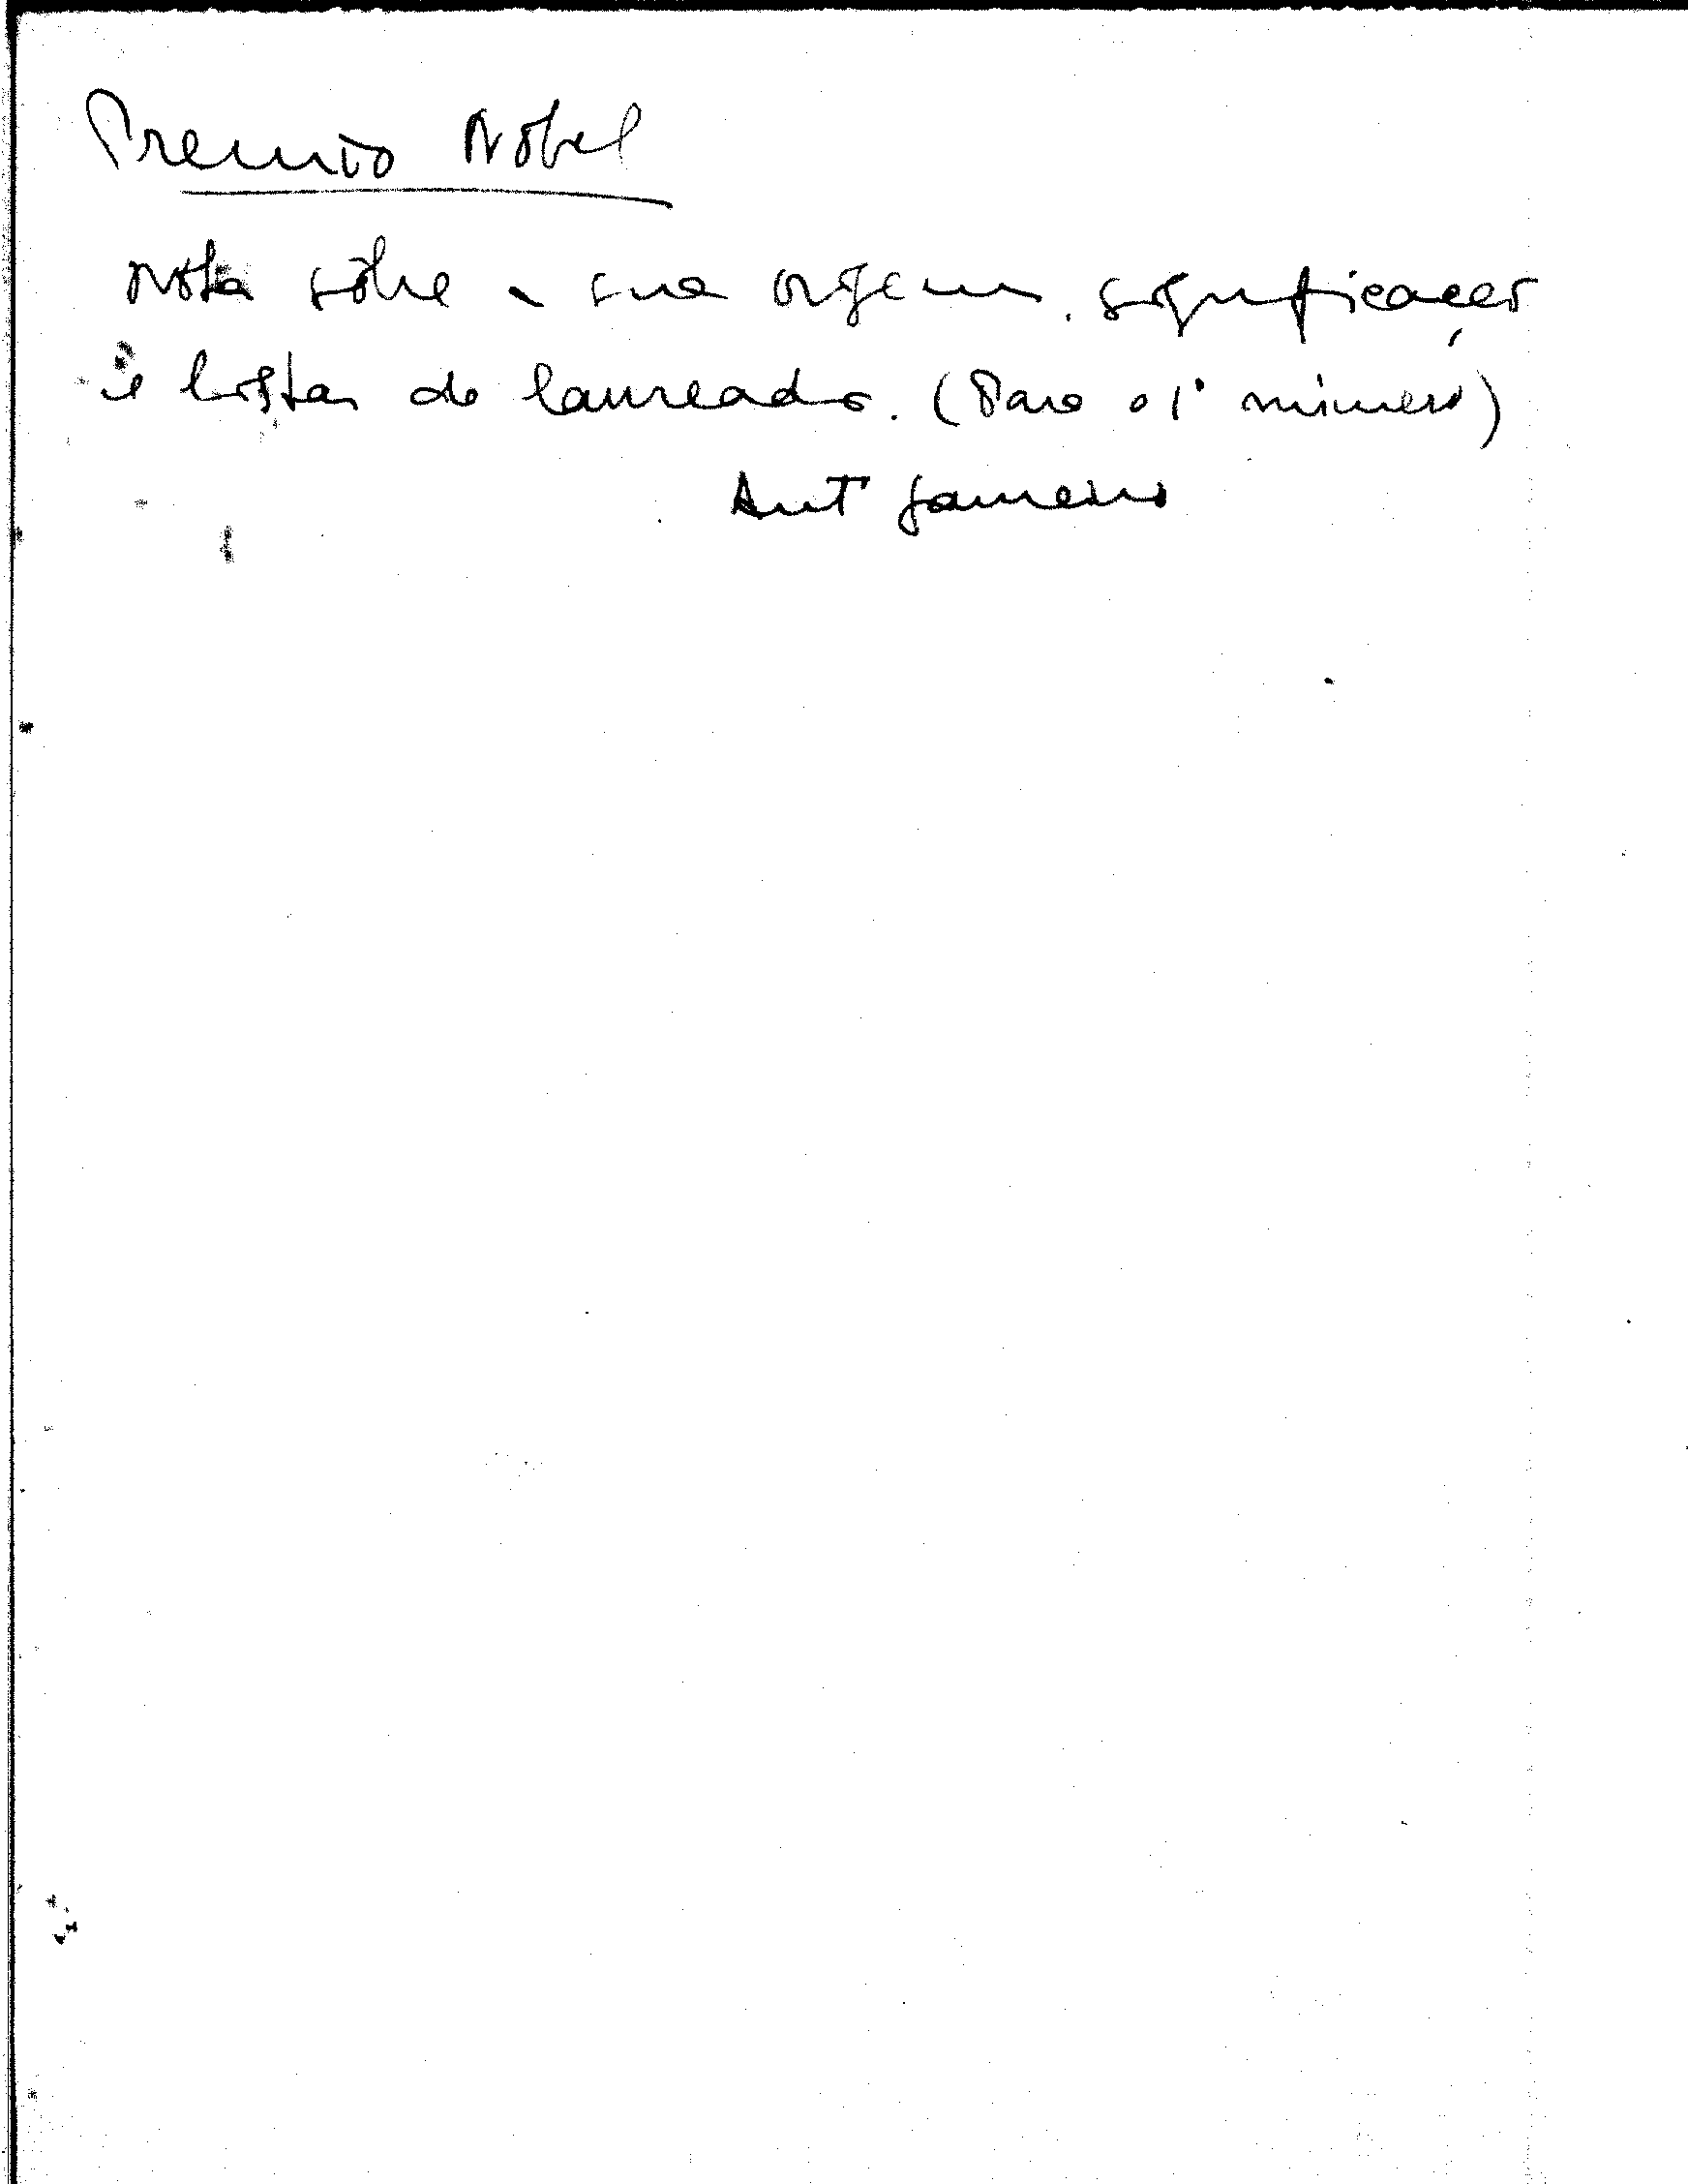 Premio Nobel
Nota sôbre a sua origem, significação
e listas de laureados. (Para o 1º número)
Antº